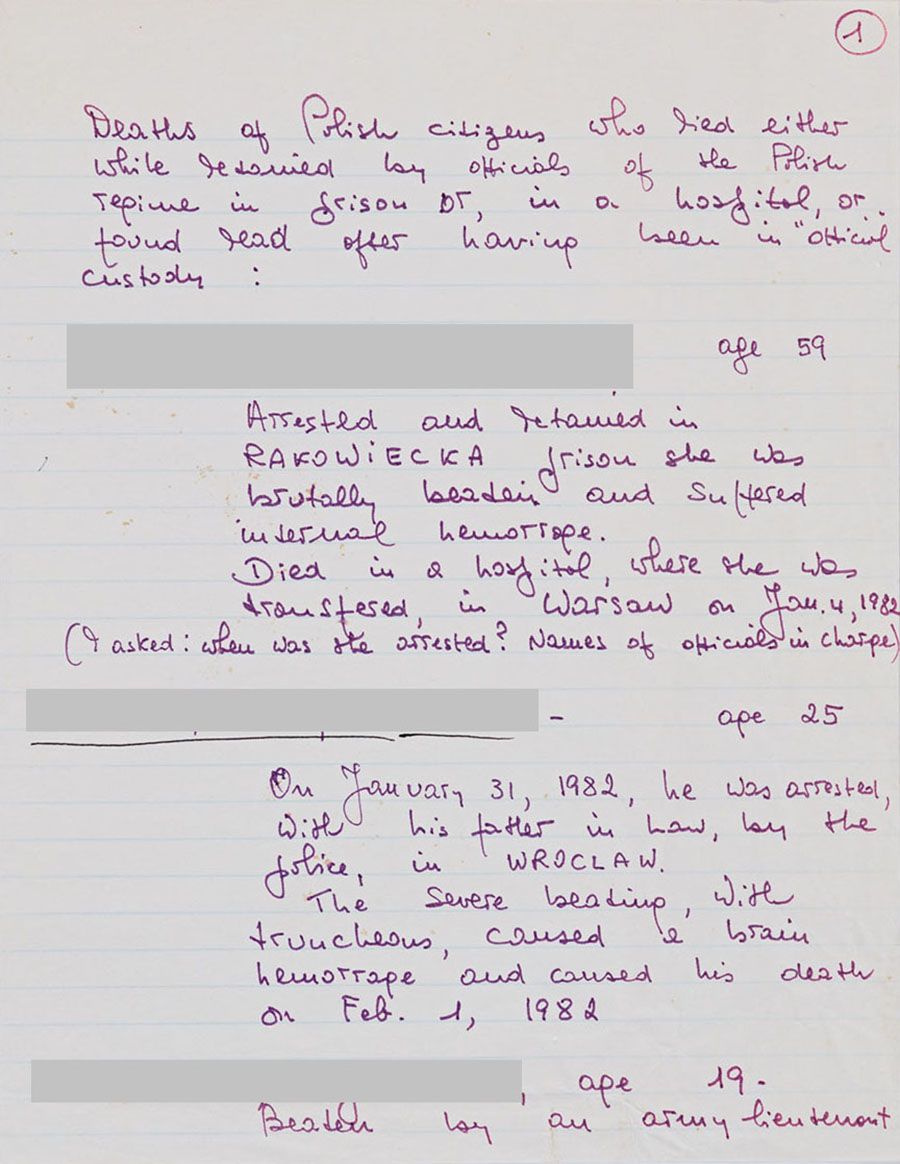 1
Deaths of Polish citizens who died either
while detained by officials of the Polish
regime in prison or, in a hospital, or
found dead after having been in "official
custody :
age 59
Arrested and detained in
RAKOWIECKA prison she was
brutally beaten and suffered
internal hemorrage.
Died in a hospital, where she was
transfered, in Warsaw on Jan. 4, 1982
(I asked : when was she arrested? Names of officials in charge)
- age 25
On January 31, 1982, he was arrested,
with his father in law, by the
police, in WROCLAW.
The severe beating, with
truncheons, caused a brain
hemorrage and caused his death
on Feb. 1, 1982
, age 19.-
Beaten by an army lieutenant